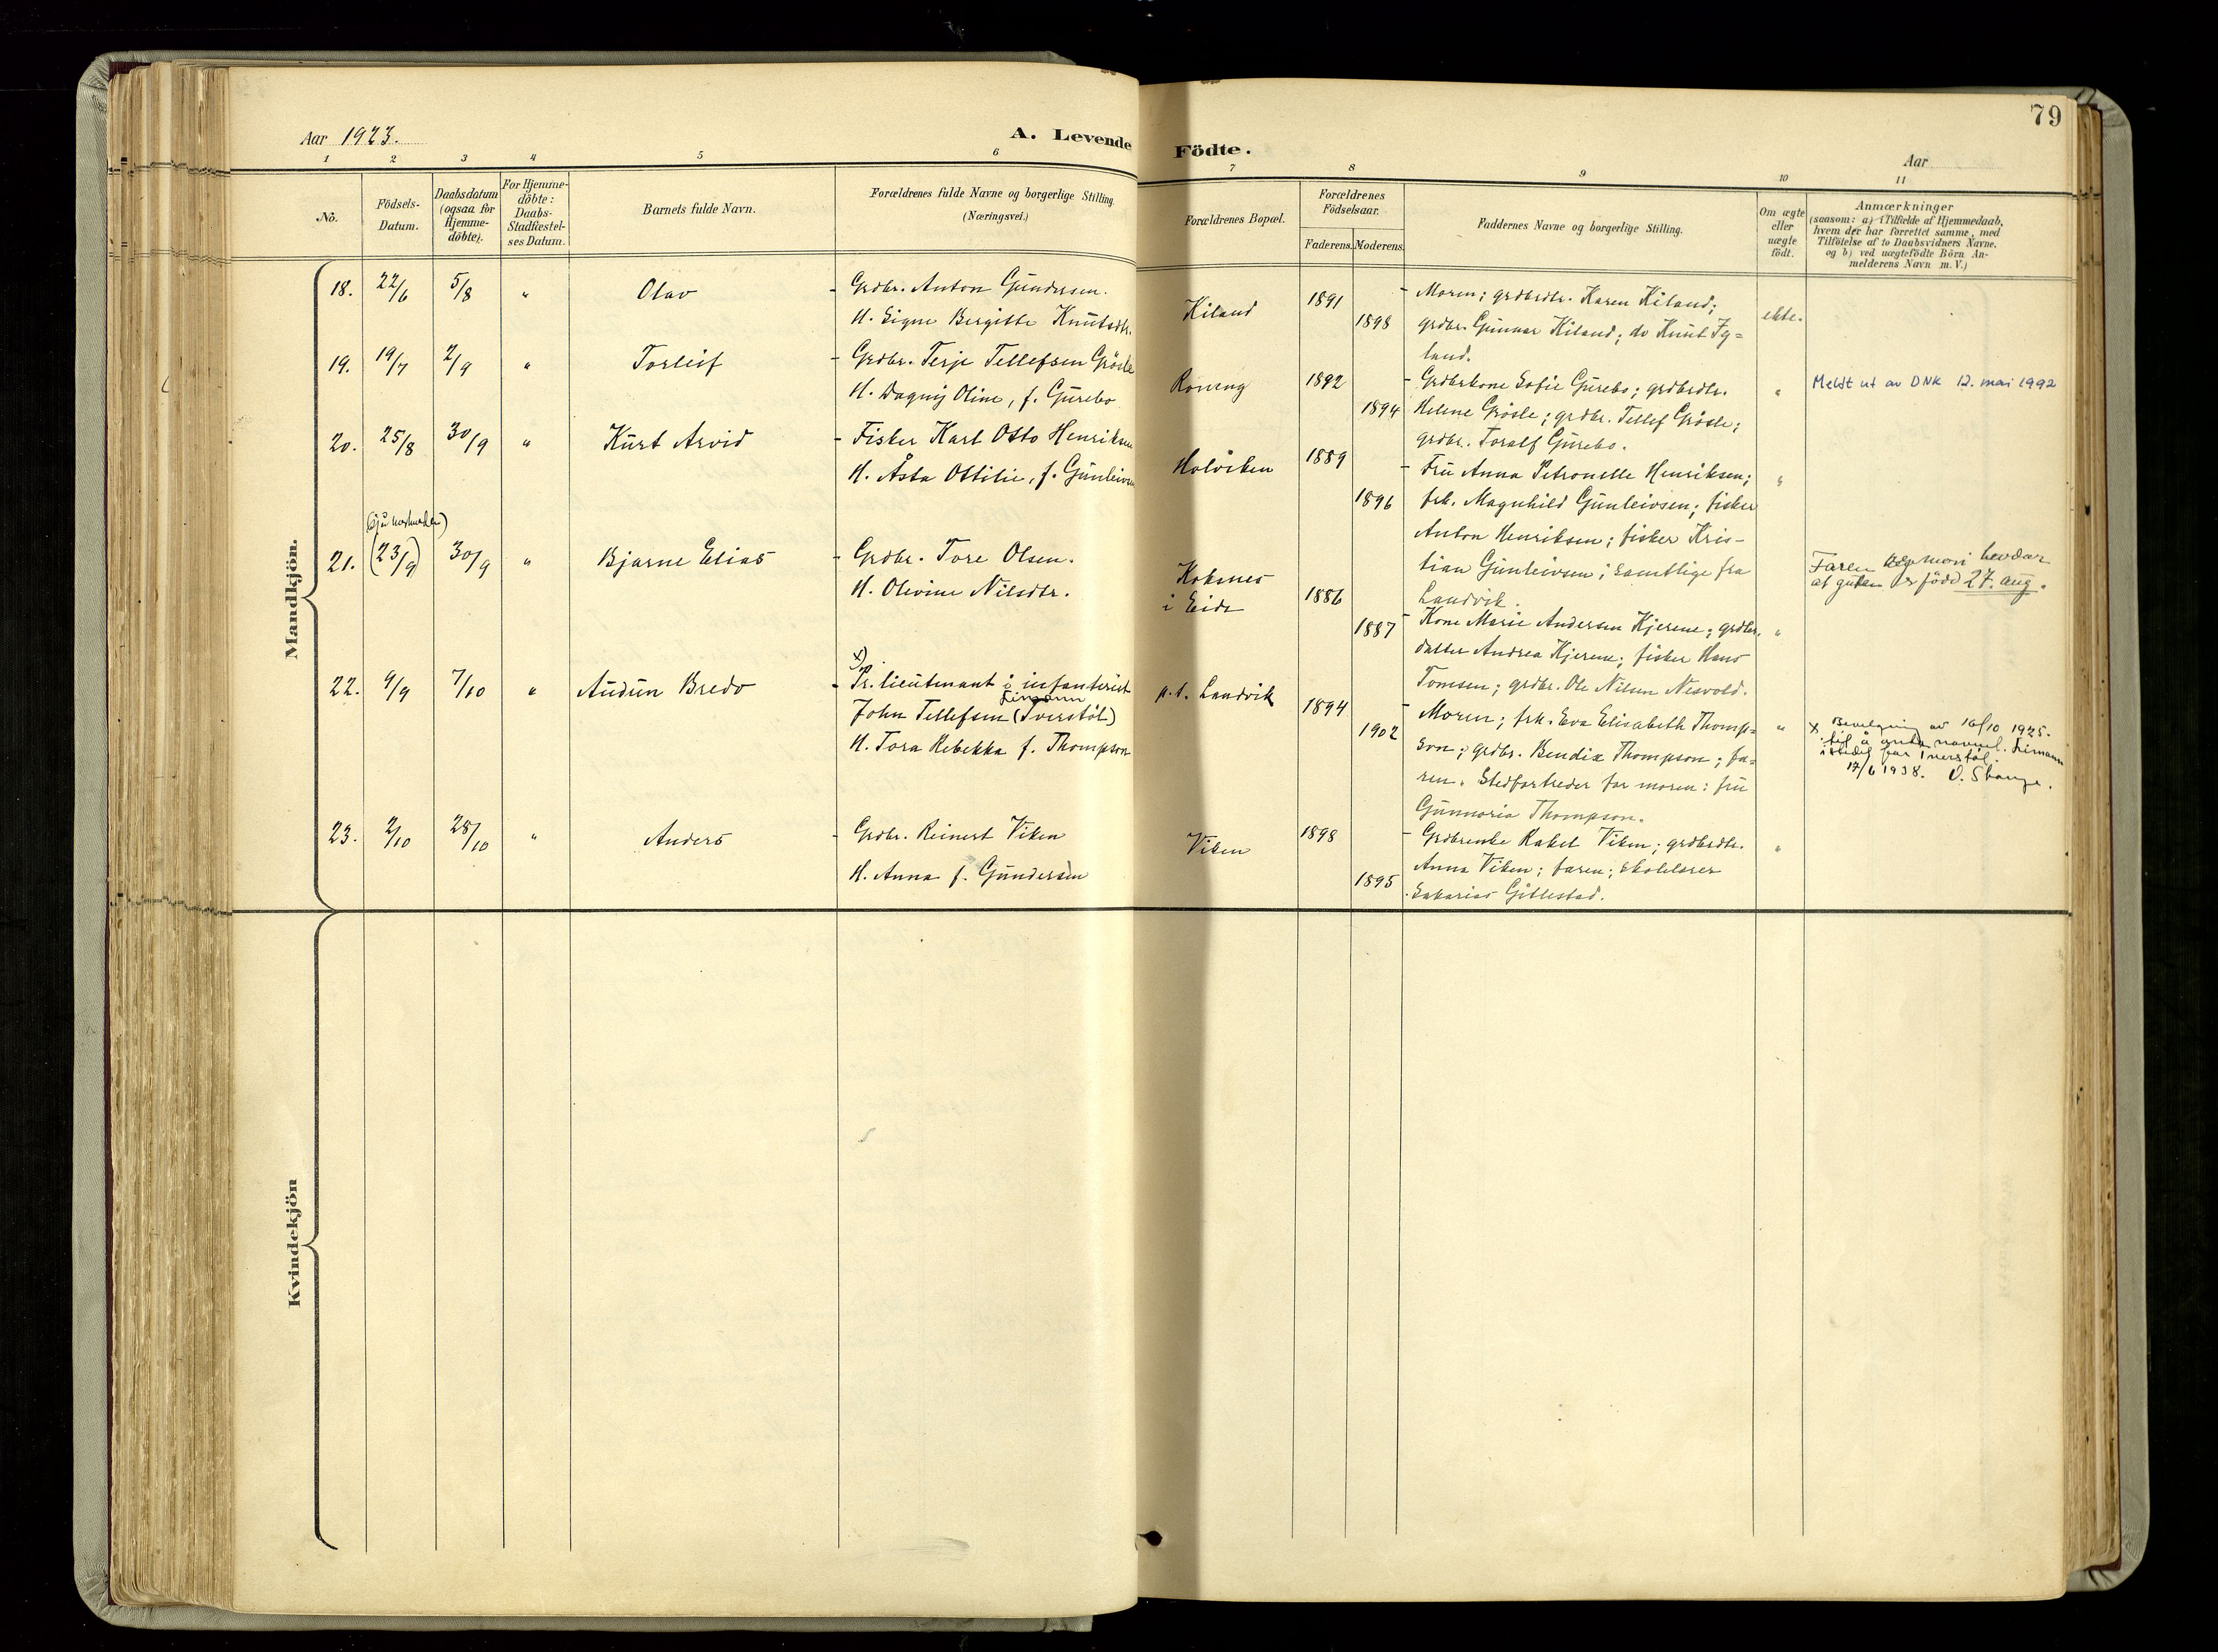 79
Aar 1923.
A. Levende Födte.
Aar
1 2 3 4 5 6 7 8 9 10 11
No.
Födsels-
Datum.
Daabsdatum
(ogsaa for
Hjemme-
döbte).
For Hjemme-
döbte:
Daabs-
Stadfæstel-
ses Datum.
Barnets fulde Navn.
Forældrenes fulde Navne og borgerlige Stilling.
(Næringsvei.)
Forældrenes Bopæl.
Forældrenes
Födselsaar.
Faderens. Moderens.
Faddernes Navne og borgerlige Stilling.
Om ægte
eller
uægte
födt.
Anmærkninger
(saasom: a) i Tilfælde af Hjemmedaab,
hvem der har forrettet samme, med
Tilföielse af to Daabsvidners Navne,
og b) ved uægtefödte Börn An-
melderens Navn m. V.)
Mandkjön.
18. 22/6 5/8 " Olav
- Grdbr. Anton Gundersen.
H. Signe Bergitte Knutsdtr.
Kiland
1891
1898
- Moren; grdbrdtr. Karen Kiland;
grdbr. Gunnar Kiland; do Knut Fg=
land.
ekte.
19. 19/7 2/9 " Torleif
- Grdbr. Terje Tellefsen Grösle
H. Dagny Oline, f. Gurebo
Roneng
1892
1894
- Grdbrkone Sofie Gurebo; grdbrdtr.
Helene Grösle; grdbr. Tellef Grösle;
grdbr. Toralf Gurebo.
"
Meldt ut av DNK 12. mai 1992
20. 25/8 30/9 " Kurt Arvid
- Fisker Karl Otto Henriksen
H. Åsta Ottilie, f. Gunleivsen
Holviken
1889
1896
- Fru Anna Petronelle Henriksen;
frk. Magnhild Gunleivsen; fisker
Anton Henriksen; fisker Kris-
tian Gunleivsen; samtlige fra
Landvik.
"
21. (23/9) 30/9 " Bjarne Elias
- Grdbr. Tore Olsen.
H. Olevine Nilsdtr.
Koksnes
i Eide
1886
1887
- Kone Marie Andersen Kjerene; grdbr.
datter Andrea Kjerene; fisker Hans
Tomsen; grdbr. Ole Nilsen Nesvold.
"
Faren og mori hevdar
at guten er född 27. aug.
22. 9/9 7/10 " Audun Bredo
x)
- Pr. lieutenant i infanteriet
John Tellefsen (Tverstöl)
H. Tora Rebekka f. Thompson
p.t. Landvik
1894
1902
- Moren; frk. Eva Elisabeth Thomp=
son; grdbr. Bendix Thompson; fa=
ren. Stedfortreder for moren: fru
Gunnoria Thompson.
"
x Bevilgning av 16/10 1925.
til å
navnet
i stedet for Tverstöl.
17/6 1938. O. Stange.
23. 2/10 28/10 " Anders
- Grdbr. Reinert Viken
H. Anna f. Gundersen
Viken
1898
1895
- Grdbrenke Rakel Viken; grdbrdtr.
Anna Viken; faren; skolelærer
Sakarias Gitlestad.
"
Kvindekjön